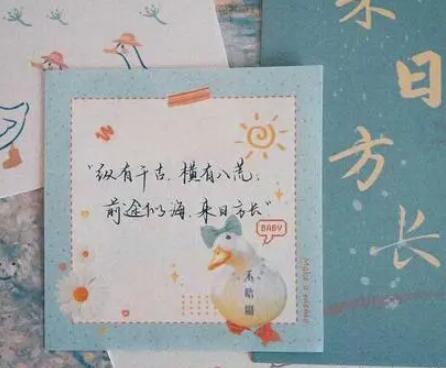 “纵有千古，横有八荒；
前途似海，来日方长”
BABY
来日方长